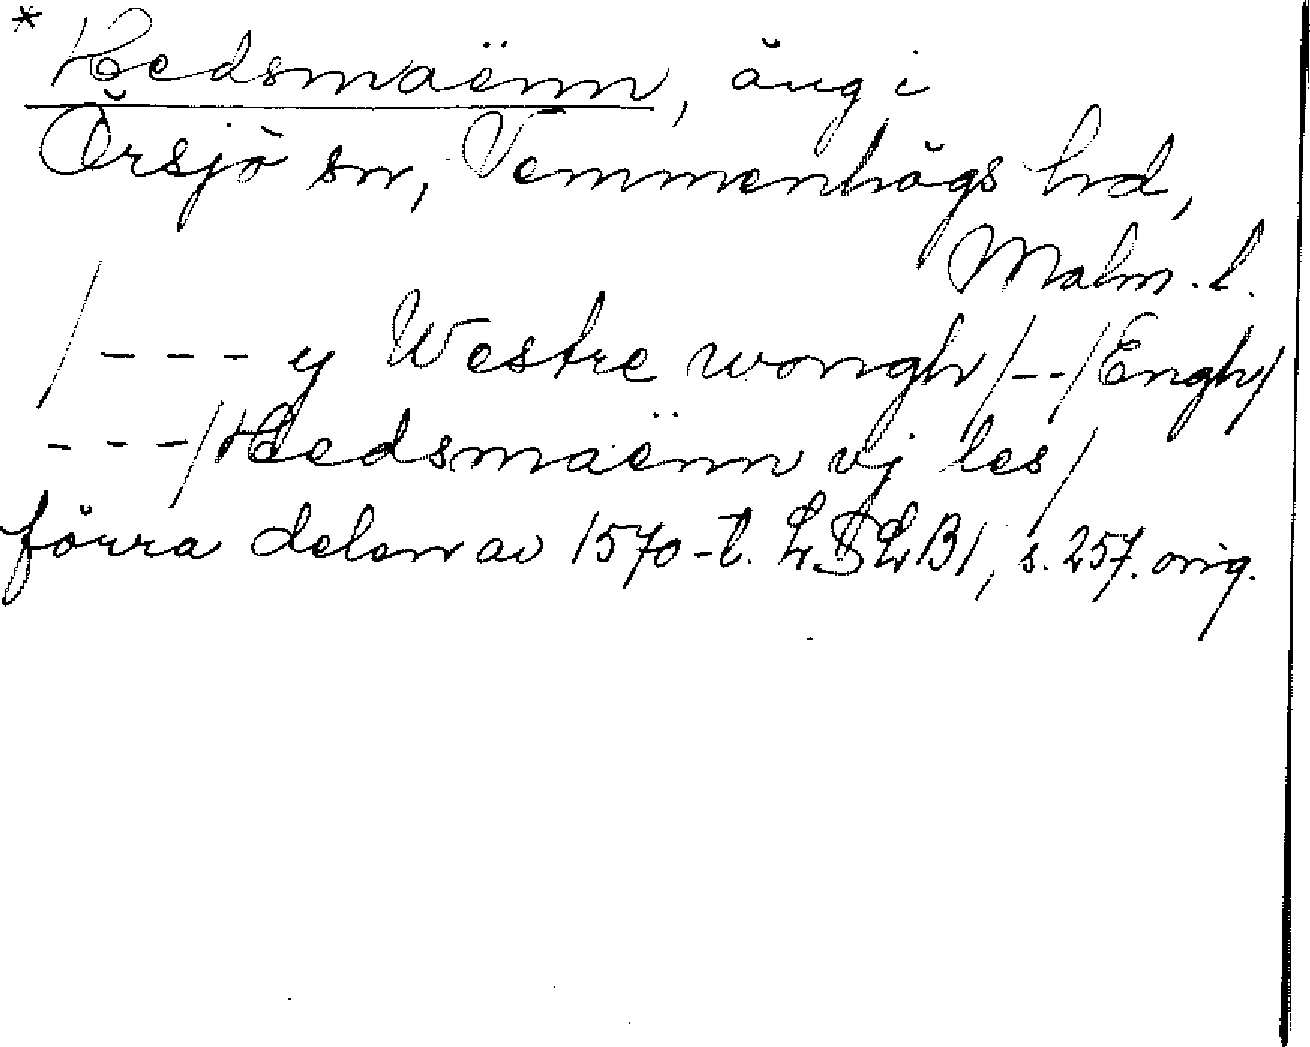 * Hedsmaënn, äng i
Örsjö sn, Vemmenhögs hd,
Malm. l.
/---- y Westre wongh/--/Engh/
---/Hedsmaënn vj les/
förra delen av 1570-t. LSLB1, s. 257. orig.